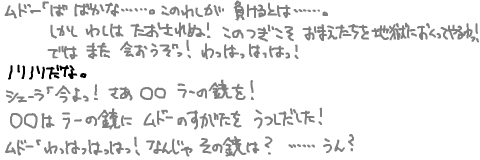 ムドー「ば ばかな……。このわしが 負けるとは……。
しかし わしは たおされぬ! このつぎこそ おまえたちを地獄におくってやるわっ!
では また 会おうぞっ! わっはっはっはっ!
ノリノリだな。
シェーラ「今よっ! さあ ○○ ラーの鏡を!
○○は ラーの鏡に ムドーのすがたを うつしだした!
ムドー「わっはっはっはっ! なんじゃ その鏡は? …… うん?